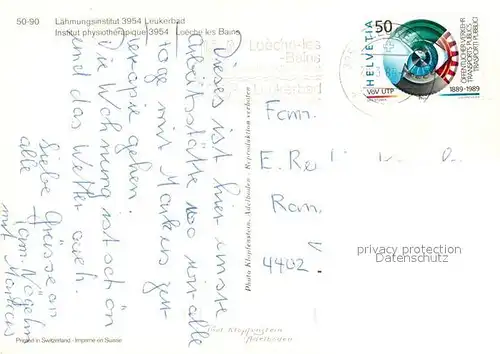 50-90 Lähmungsinstitut 3954 Leukerbad
Institut physiothérapique 3954 Loèche les Bains
Loèche-les
-Bains
Leukerbad
HELVETIA
50
VöV UTP
ÖFFENTLICHER VERKEHR
TRANSPORTS PUBLICS
TRASPORTI PUBBLICI
1889-1989
Dieses ist hier unsre
Arbeitsstätte wo wir alle
tage mit Markus zur
Therapie gehen.
Die Wohnung ist schön
und das Wetter auch.
Liebe Grüsse an
alle
mit Markus
Fam.
E.
Ram
4402
Photo Klopfenstein, Adelboden - Reproduktion verboten
Klopfenstein
Adelboden
Printed in Switzerland - Imprimé en Suisse
privacy protection
Datenschutz